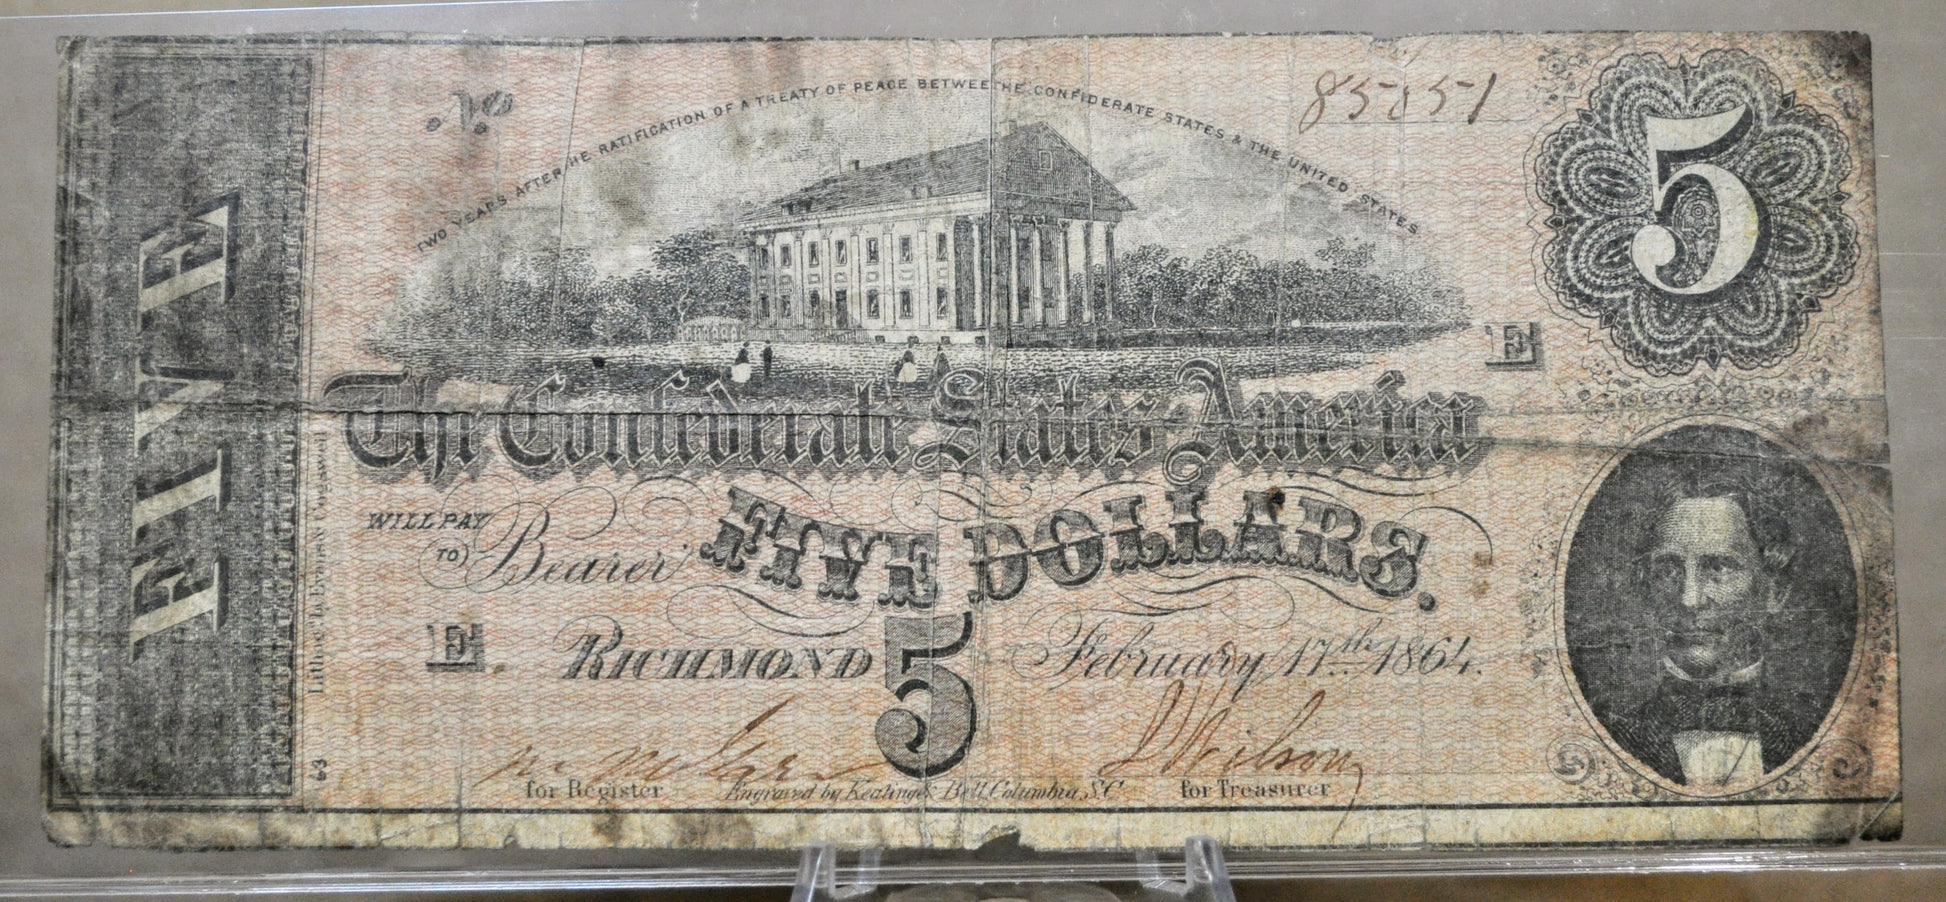 No
85651
5
TWO YEARS AFTER THE RATIFICATION OF A TREATY OF PEACE BETWEEN THE CONFEDERATE STATES & THE UNITED STATES
E
FIVE
The Confederate States America
WILL PAY
TO
Bearer
FIVE DOLLARS.
E.
RICHMOND
5
February 17th 1864.
Lithog'd by Evans & Cogswell
63
Wilson
for Register
Engraved by Keatinge & Ball, Columbia, S.C.
for Treasurer